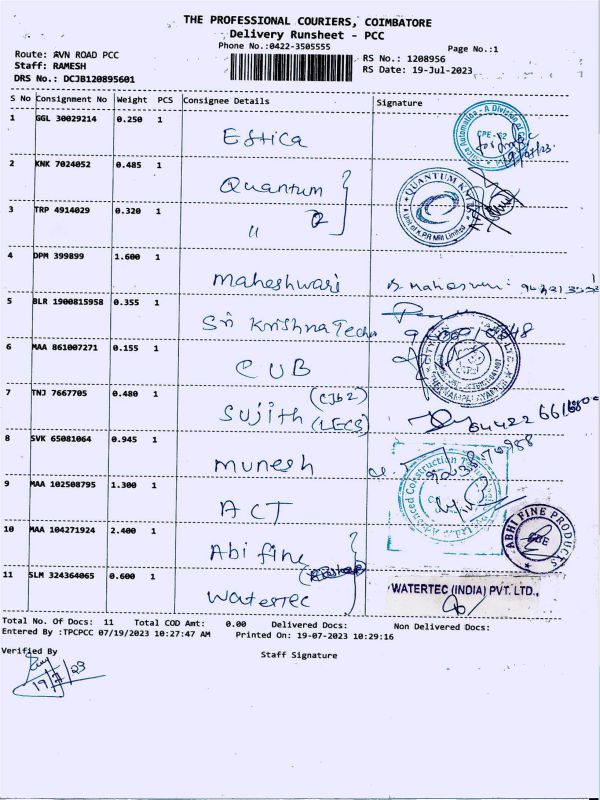 THE PROFESSIONAL COURIERS, COIMBATORE
Delivery Runsheet - PCC
Phone No.:0422-3505555
Page No.:1
Route: AVN ROAD PCC
RS No.: 1208956
Staff: RAMESH
RS Date: 19-Jul-2023
DRS No.: DCJB120895601
S No Consignment No Weight PCS Consignee Details Signature
1 GGL 30029214 0.250 1
Estica
2 KNK 7024052 0.485 1
Quantum
3 TRP 4914029 0.320 1
"
QUANTUM
4 DPM 399899 1.600 1
Maheshwari
5 BLR 1900815958 0.355 1
Sri Krishna Tech
6 MAA 861007271 0.155 1
CUB
7 TNJ 7667705 0.480 1
Sujith (CJB2)
(LECS)
8 SVK 65081064 0.945 1
Munesh
9 MAA 102508795 1.300 1
ACT
10 MAA 104271924 2.400 1
Abi fine
ABHI FINE PRODUCTS
11 SLM 324364065 0.600 1
Watertec
WATERTEC (INDIA) PVT. LTD.,
Total No. Of Docs: 11 Total COD Amt: 0.00 Delivered Docs: Non Delivered Docs:
Entered By :TPCPCC 07/19/2023 10:27:47 AM Printed On: 19-07-2023 10:29:16
Verified By
Staff Signature